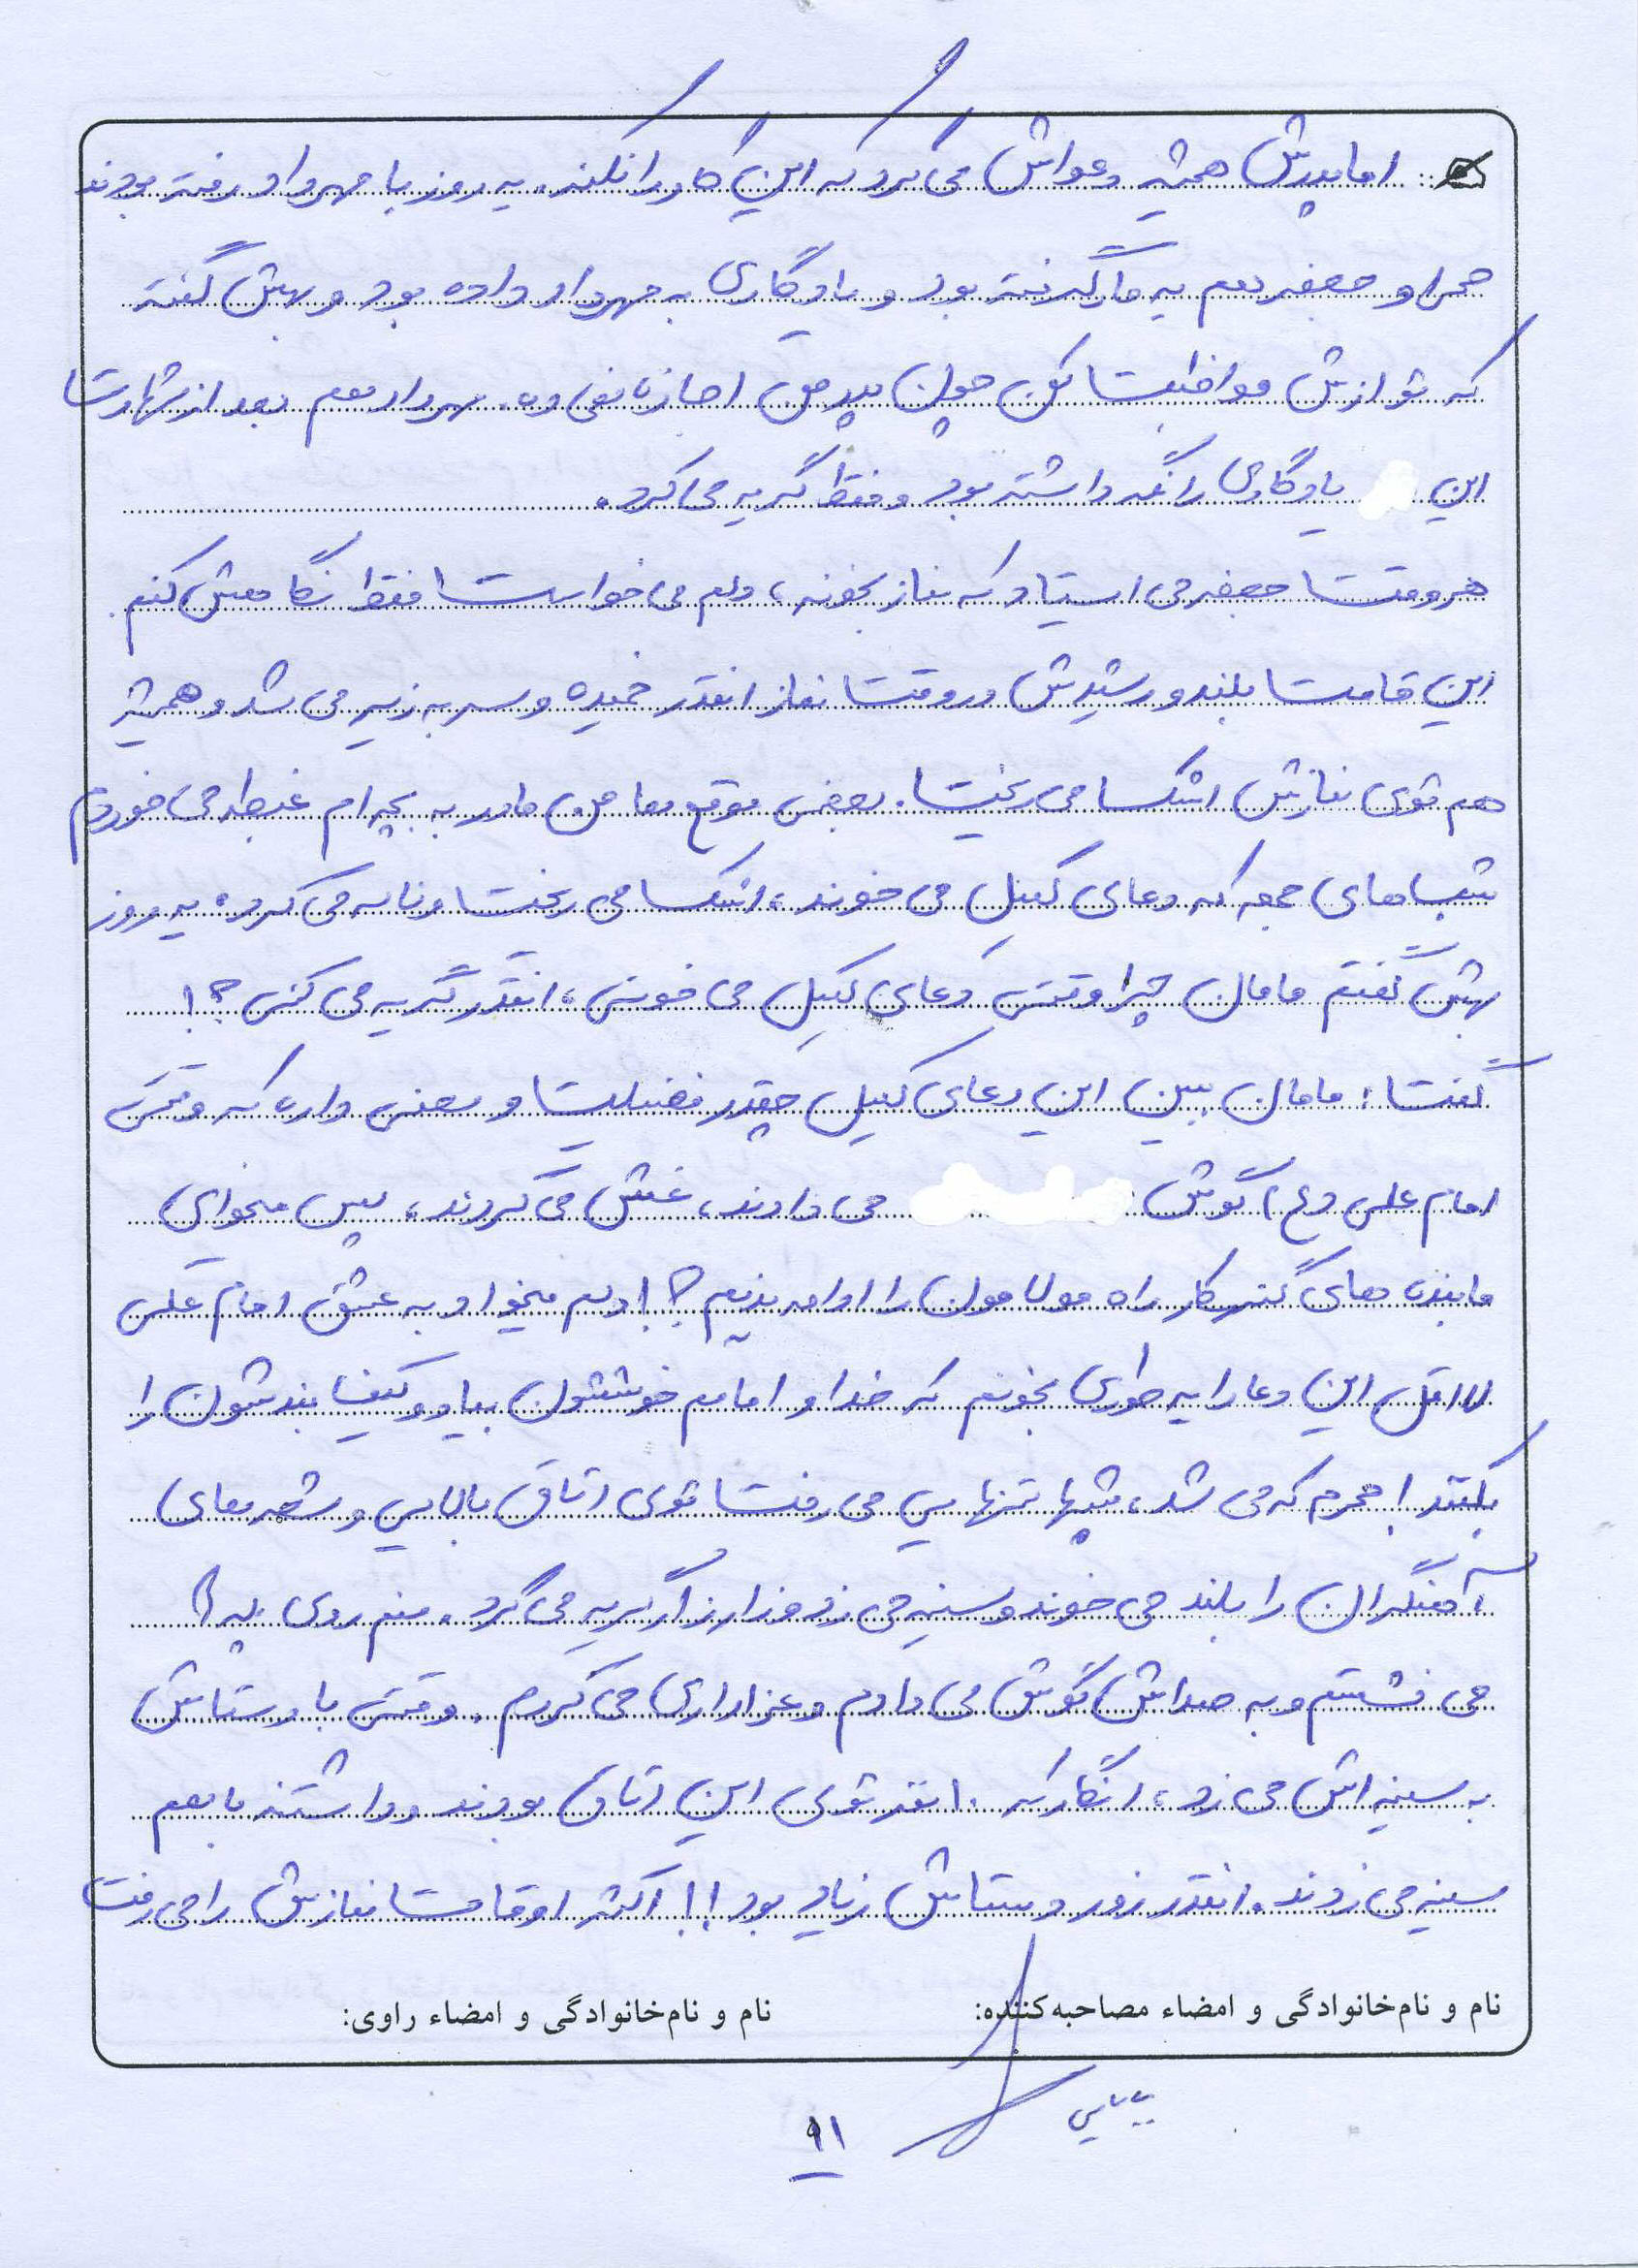 اما پدرش همیشه دعواش می کرد که این کار را نکند. یه روز با مهرداد رفته بودند
صحرا و جعفر هم یه مار گرفته بود و یادگاری به مهرداد داده بود و بهش گفته
که تو ازش مواظبت کن چون پدر من اجازه نمی ده. مهرداد هم بعد از شهادت
این یادگاری را نگه داشته بود و فقط گریه می کرد.
هر وقت جعفر می استیاد که نماز بخونه، دلم می خواست فقط نگاهش کنم.
این قامت بلند و رشیدش در وقت نماز انقدر خمیده و سر به زیر می شد و همیشه
هم توی نمازش اشک می ریخت. بعضی موقع ها من مادر به بچه ام غبطه می خوردم
شب های جمعه که دعای کمیل می خوند، اشک می ریخت و ناله می کرد. یه روز
بهش گفتم مامان چرا وقتی دعای کمیل می خونی، انقدر گریه می کنی؟!
گفت: مامان ببین این دعای کمیل چقدر فضیلت و معنی داره که وقتی
امام علی (ع) گوش می دادند، غش می کردند، پس میخوای
ما بنده های گنه کار راه مولامون را ادامه بدیم؟! دلم میخواد به عشق امام علی
لااقل این دعا را یه طوری بخونم که خدا و امامم خوششون بیاد و کیف بندشون را
بکنند! محرم که می شد، شبها تنهایی می رفت توی اتاق بالایی و شعرهای
آهنگران را بلند می خوند و سینه می زد و زار زار گریه می کرد. منم روی پله ها
می نشستم و به صداش گوش می دادم و عزاداری می کردم. وقتی با دستاش
به سینه اش می زد، انگار که ۱۰ نفر توی این اتاق بودند و داشتند باهم
سینه می زدند. انقدر زور دستاش زیاد بود!! اکثر اوقات نمازش را می رفت
نام و نام‌خانوادگی و امضاء مصاحبه‌کننده: نام و نام‌خانوادگی و امضاء راوی:
۹۱